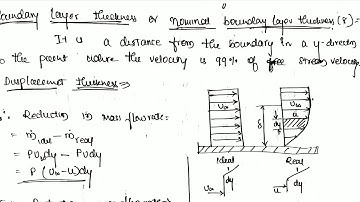 boundary layer thickness or nominal boundary layer thickness (δ) :-
It is a distance from the boundary in a y-direction
to the point where the velocity is 99% of free stream velocity
Displacement thickness :-
Reduction in mass flow rate =
= ṁ ideal - ṁ real
= ρU∞dy - ρUdy
= ρ (U∞-u)dy
U∞
δ
dy
U∞
u
Ideal
Real
U∞
dy
u
dy